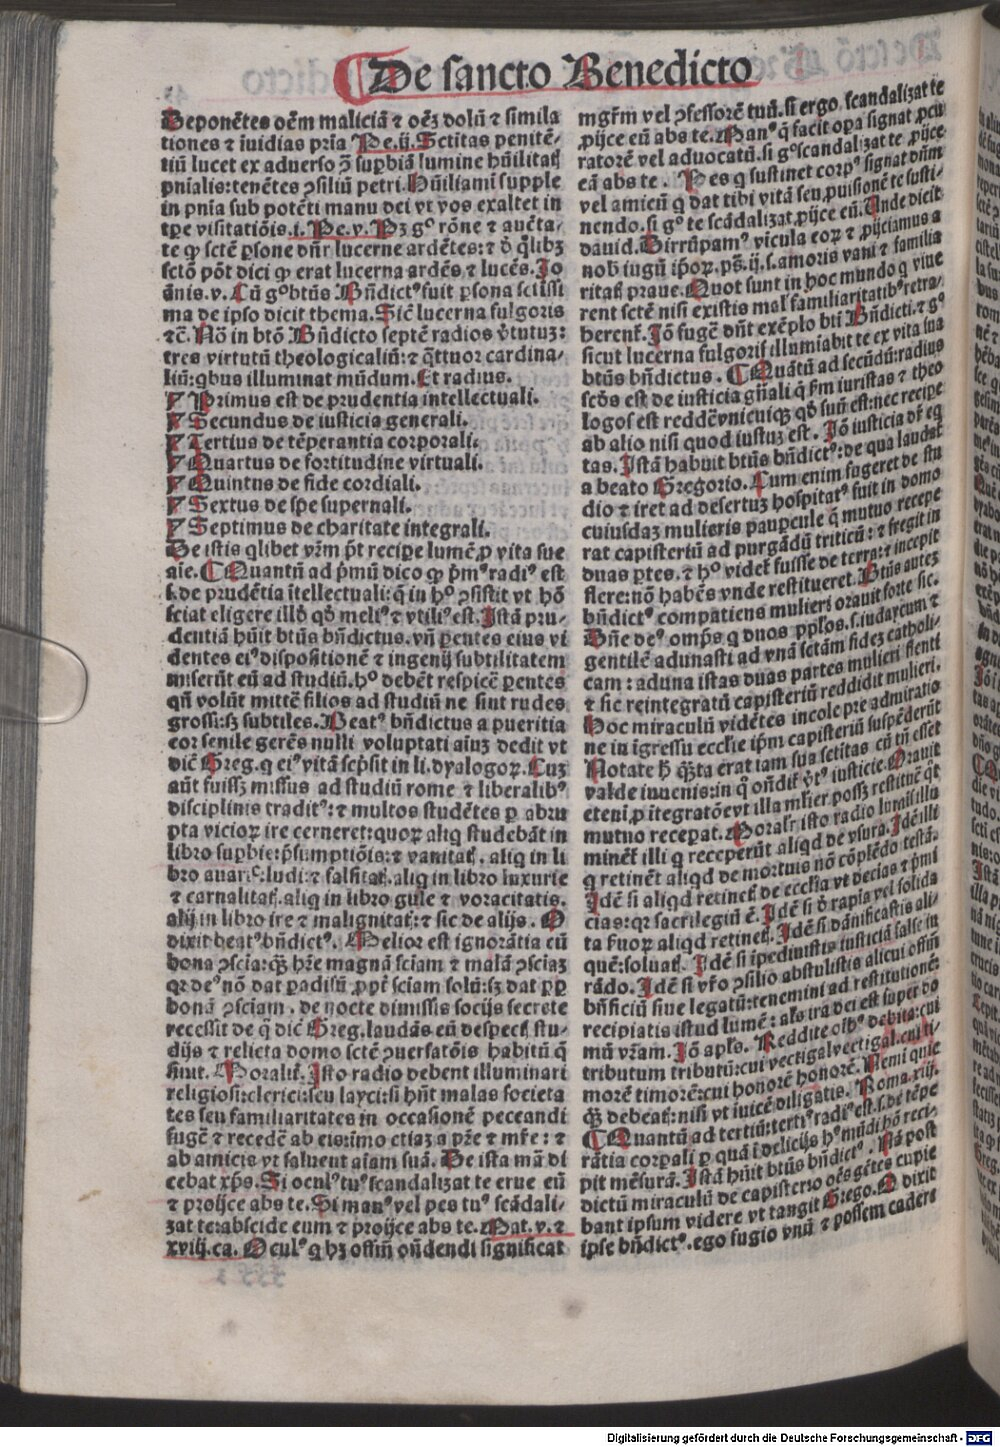 De sancto Benedicto
Deponētes oēm maliciā ⁊ oēꝫ dolū ⁊ simila
tiones ⁊ īuidias pria Pe.ij. Sctitas penitē-
tiū lucet ex aduerso ꝯ supbiā lumine hūilitatꝭ
pnialis: tenētes ꝯsiliū petri. Hūiliamī supple
in pnīa sub potēti manu dei vt vos exaltet in
tpe visitatiōis. i. Pe. v. Pꝫ gº rōne ⁊ auctā-
te ꝙ sctē psone dn̄r lucerne ardētes: ⁊ ð qlibꝫ
sctō pōt dici ꝙ erat lucerna ardēs ⁊ lucēs. Jo
ānis. v. Cū gº btūs Bn̄dictꝰ fuit psona sctissi
ma de ipso dicit thema. Sic̄ lucerna fulgoris
⁊c̄. Nō in btō Bn̄dicto septē radios ṽtutuꝫ:
tres virtutū theologicaliū: ⁊ qttuor cardina-
liū: qbus illuminat mūdum. Et radius.
Primus est de prudentia intellectuali.
Secundus de iusticia generali.
Tertius de tēperantia corporali.
Quartus de fortitudine virtuali.
Quintus de fide cordiali.
Sextus de spe supernali.
Septimus de charitate integrali.
De istis qlibet vrm pt recipe lumē ꝓ vita sue
aie. Quantū ad pmū dico ꝙ pmꝰ radiꝰ est
s. de prudētia ītellectuali: q in hº ꝯsistit vt hō
sciat eligere illð qð meliꝰ ⁊ vtiliꝰ est. Istā pru-
dentiā hūit btūs bn̄dictus. vn̄ pentes eius vi
dentes eiꝰ dispositionē ⁊ ingenij subtilitatem
miserūt eū ad studiū. hº debēt respicē pentes
qn̄ volūt mittē filios ad studiū ne sint rudes
grossi: sꝫ subtiles. Beatꝰ bn̄dictus a pueritia
cor senile gerēs nulli voluptati aīuꝫ dedit vt
dic̄ Greg. q eiꝰ vitā scpsit in li. dyalogoꝝ. Cuꝫ
aūt fuissꝫ missus ad studiū rome ⁊ liberalibꝰ
disciplinis traditꝰ: ⁊ multos studētes p abru
pta vicioꝝ ire cerneret: quoꝝ aliq studebāt in
libro supbie: psumptiōis: ⁊ vanitatꝭ. aliq in li
bro auaricꝭ: ludi: ⁊ falsitatꝭ. aliq in libro luxurie
⁊ carnalitatꝭ. aliq in libro gule ⁊ voracitatis.
alij in libro ire ⁊ malignitatꝭ: ⁊ sic de alijs. O
dixit beatꝰ bn̄dictꝰ. Melior est ignorātia cū
bona ꝯscia: qꝫ hre magnā sciam ⁊ malā ꝯsciaꝫ
qr deꝰ nō dat padisū ꝓpt sciam solū: sꝫ dat pp
bonā ꝯsciam. de nocte dimissis socijs secrete
recessit de q dic̄ Greg. laudās eū despectꝭ stu-
dijs ⁊ relicta domo sctē ꝯuersatōis habitū q
siuit. Moralit. Isto radio debent illuminari
religiosi: clerici: seu layci: si hn̄t malas societa
tes seu familiaritates in occasionē peccandi
fugē ⁊ recedē ab eis: imo etiaꝫ a pre ⁊ mre: ⁊
ab amicis vt saluent aīam suā. De ista mā di
cebat xps. Si oculꝰ tuꝰ scandalizat te erue eū
⁊ proijce abs te. Si manꝰ vel pes tuꝰ scādali-
zat te: abscide eum ⁊ proijce abs te. Mat. v. ⁊
xviij. ca. Oculꝰ q hꝫ offm on̄dendi significat
mgrm vel ꝯfessorē tuū. si ergo scandalizat te
ꝓijce eū abs te. Manꝰ q facit opa signat ꝓcu
ratorē vel aduocatū. si gº scandalizat te ꝓijce
eā abs te. Pes q sustinet corpꝰ signat dn̄m
vel amicū q dat tibi vitā seu ꝓuisionē te susti-
nendo. si gº te scādalizat ꝓijce eū. Unde dicit
dauid. Dirrūpamꝰ vicula eoꝝ ⁊ ꝓijciamus a
nob iugū ipoꝝ. ps. ij. s. amoris vani ⁊ familia
ritatꝭ praue. Quot sunt in hoc mundo q viue
rent sctē nisi existis mal familiaritatibꝰ retra-
herent. Jō fugē dn̄t exēplo bti Bn̄dicti. ⁊ gº
sicut lucerna fulgoris illumiabit te ex vita sua
btūs bn̄dictus. Quātū ad secūdū: radius
scds est de iusticia gn̄ali q fm iuristas ⁊ theo
logos est reddēvnicuiqꝫ qð suū est: nec recipe
ab alio nisi quod iustuꝫ est. Jō iusticia dr eq
tas. Istā habuit btūs bn̄dictꝰ: de qua laudat
a beato Gregorio. Cum enim fugeret de stu
dio ⁊ iret ad desertuꝫ hospitatꝰ fuit in domo
cuiusdaꝫ mulieris paupcule q mutuo recepe
rat capisteriū ad purgādū triticū: ⁊ fregit in
duas ptes. ⁊ hº videt fuisse de terra: ⁊ incepit
flere: nō habēs vnde restitueret. Btūs auteꝫ
bn̄dictꝰ compatiens mulieri orauit forte sic.
Dn̄e deꝰ omps q duos pplos. s. iudaycum ⁊
gentilē adunasti ad vnā sctām fideꝫ catholi-
cam: aduna istas duas partes mulieri flenti
⁊ sic reintegratū capisteriū reddidit mulieri.
Hoc miraculū vidētes incole pre admiratio
ne in īgressu ecclie ipm capisteriū suspēderūt
Notate h qzta erat iam sua sctitas cū tn̄ esset
valde iuuenis: in q on̄dit ṽtꝰ iusticie. Orauit
eteni ꝓ itegratōe vt illa mlier possꝫ restituē qt
mutuo receperat. Moralr isto radio lucis illu
minent illi q receperūt aliqd de vsura. Idē illi
q retinēt aliqd de mortuis nō cōplēdo testā.
Idē si aliqd retinēt de ecclia vt decias ⁊ pmi
cias: qr sacrilegiū ē. Idē si ð rapia vel solida
ta fuoꝝ aliqd retinetꝭ. Idē si dānificastis ali-
quē: soluatꝭ. Idē si īpedinistis iusticiā false iu
rādo. Idē si vro ꝯsilio abstulistis alicui offm
bn̄ficiū siue legatū: tenemini ad restitutionē:
recipiatis istud lumē: als ira dei est super do
mū vram. Jō apls. Reddite oibꝰ debita: cui
tributum tributū: cui vectigal vectigal. cui ti-
morē timorē: cui honorē honorē. Nemi quic
qꝫ debeatꝭ: nisi vt iuicē diligatis. Roma. xiij.
Quantū ad tertiū: tertiꝰ radiꝰ est. s. de tēpe
rātia corpali p quā i delicijs hꝰ mūdi hō reci-
pit mēsurā. Istā hūit btūs bn̄dictꝰ. Nā post
dictū miraculū de capisterio oēs gētes cupie
bant ipsum videre vt tangit Grego. O dixit
ipse bn̄dictꝰ. ego fugio vnū ⁊ possem cadere
Digitalisierung gefördert durch die Deutsche Forschungsgemeinschaft - DFG